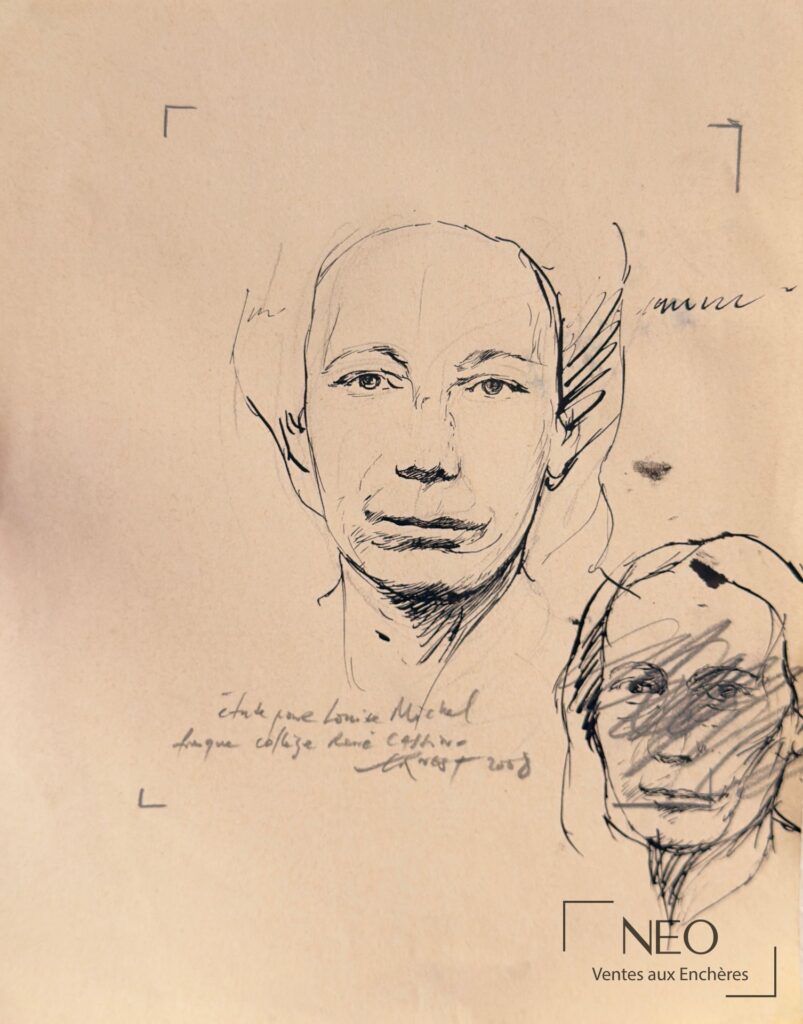 étude pour Louise Michel
fresque collège René CASSIN
2008
NEO
Ventes aux Enchères